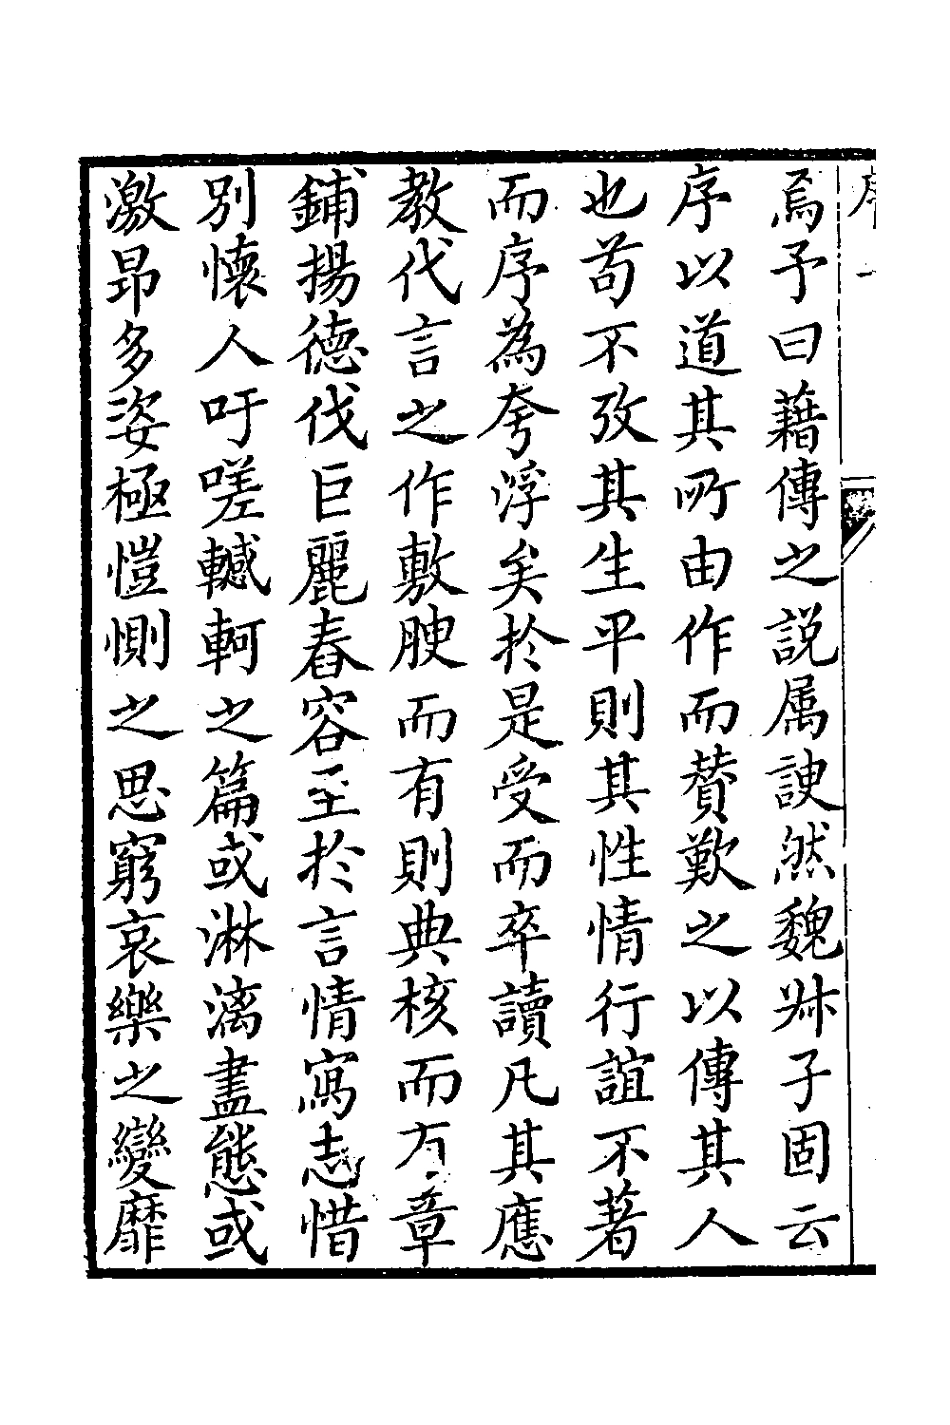 序 一
焉予曰藉傳之説属諛然魏牀子固云
序以道其所由作而賛歎之以傳其人
也苟不攷其生平則其性情行誼不著
而序為夸浮矣於是受而卒讀凡其應
教代言之作敷腴而有則典核而有章
鋪揚德伐巨麗舂容至於言情寫志惜
別懷人吁嗟轗軻之篇或淋漓盡態或
激昂多姿極愷惻之思窮哀樂之變靡